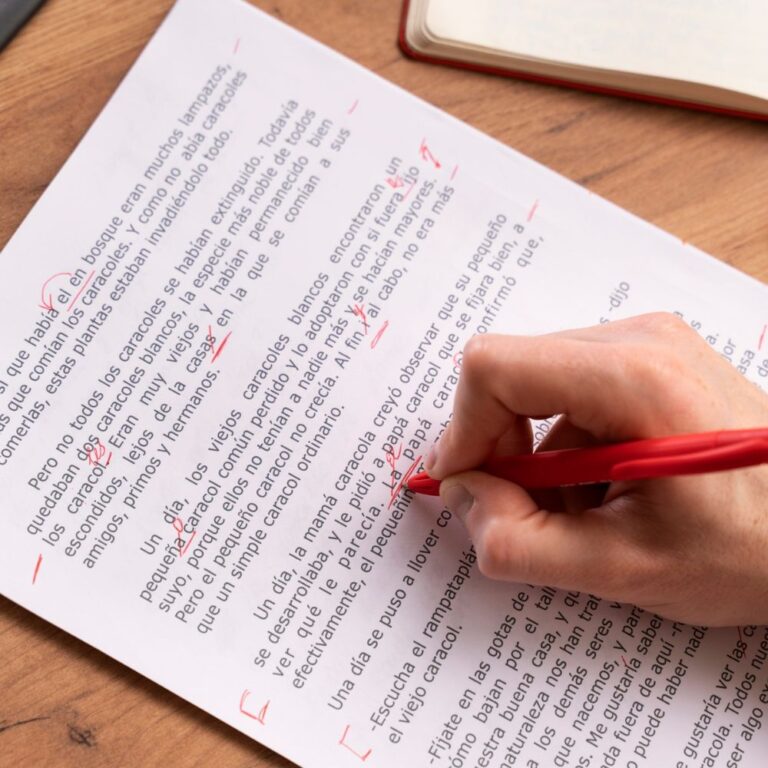 que había el en bosque eran muchos lampazos,
que comían los caracoles. Y como no abía caracoles
comerlas, estas plantas estaban invadiéndolo todo.
Pero no todos los caracoles se habían extinguido. Todavía
quedaban dos caracoles blancos, la especie más noble de todos
los caracol Eran muy viejos y habían permanecido bien
escondidos, lejos de la casas en la que se comían a sus
amigos, primos y hermanos.
Un día, los viejos caracoles blancos encontraron un
pequeña caracol común perdido y lo adoptaron con si fuera ijo
suyo, porque ellos no tenían a nadie más y se hacían mayores.
Pero el pequeño caracol no crecía. Al fin al cabo, no era más
que un simple caracol ordinario.
Un día, la mamá caracola creyó observar que su pequeño
se desarrollaba, y le pidió a papá caracol que se fijara bien, a
ver qué le parecía. La papá caracol confirmó que,
efectivamente, el
Una día se puso a llover -dijo
-Escucha el
el viejo caracol.
-Fíjate en las gotas de
cómo bajan por el
buena casa, y
naturaleza nos han
a los demás seres
que nacemos, y para
Me gustaría saber
fuera de aquí
puede haber nada
gustaría ver las
Todos
ser algo